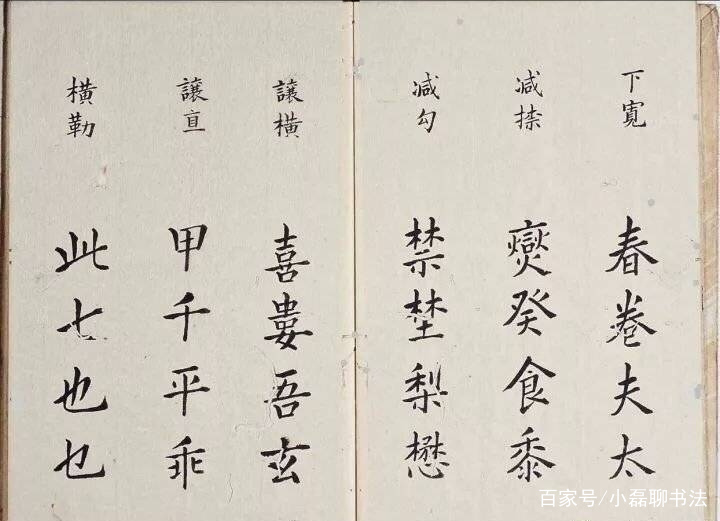 下寬
春卷夫太
減捺
燮癸食黍
減勾
禁埜梨懋
讓橫
喜婁吾玄
讓直
甲千平乖
橫勒
此七也乜
百家号/小磊聊书法